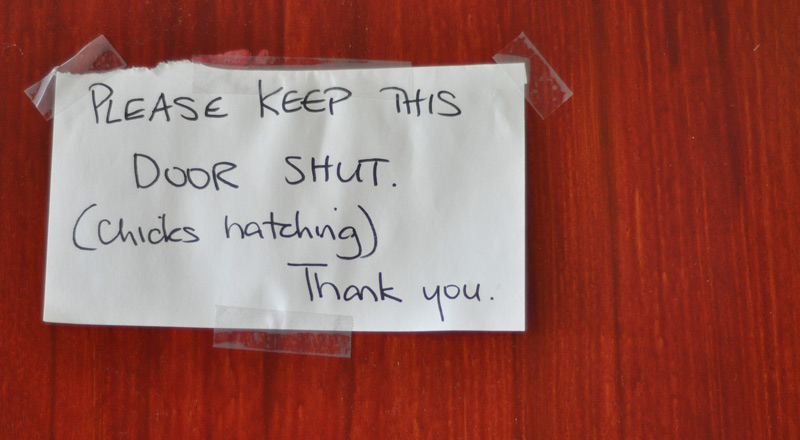 PLEASE KEEP THIS
DOOR SHUT.
(Chicks hatching)
Thank you.